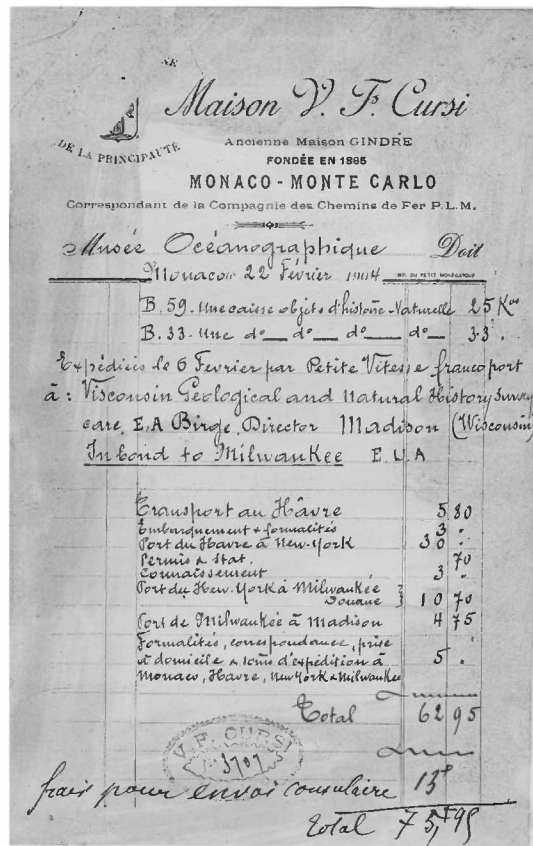 Maison V. F. Cursi
DE LA PRINCIPAUTÉ
Ancienne Maison GINDRE
FONDÉE EN 1865
MONACO - MONTE CARLO
Correspondant de la Compagnie des Chemins de Fer P.L.M.
Musée Océanographique Doit
Monaco le 22 Février 1904 IMP. DU PETIT MONÉGASQUE
B. 59. Une caisse objets d'histoire Naturelle 25 Kos
B. 33. Une do do do do 33 "
Expédiées le 6 Fevrier par Petite Vitesse franco port
à: Visconsin Geological and Natural History Survey
care, E.A Birge, Director Madison (Wisconsin)
In bond to Milwaukee E.U.A
Transport au Hâvre 5 80
Embarquement & formalités 3 "
Port du Havre à New-York 30 "
Permis & Stat. 70
Connaissement 3 "
Port du New-York à Milwaukée
Douane 10 70
Port de Milwaukée à Madison 4 75
Formalités, correspondance, prise
à domicile & soins d'expédition à 5 "
Monaco, Havre, New York & Milwaukee
Total 62 95
V. F. CURSI
frais pour envoi consulaire 13f
total 75,f95